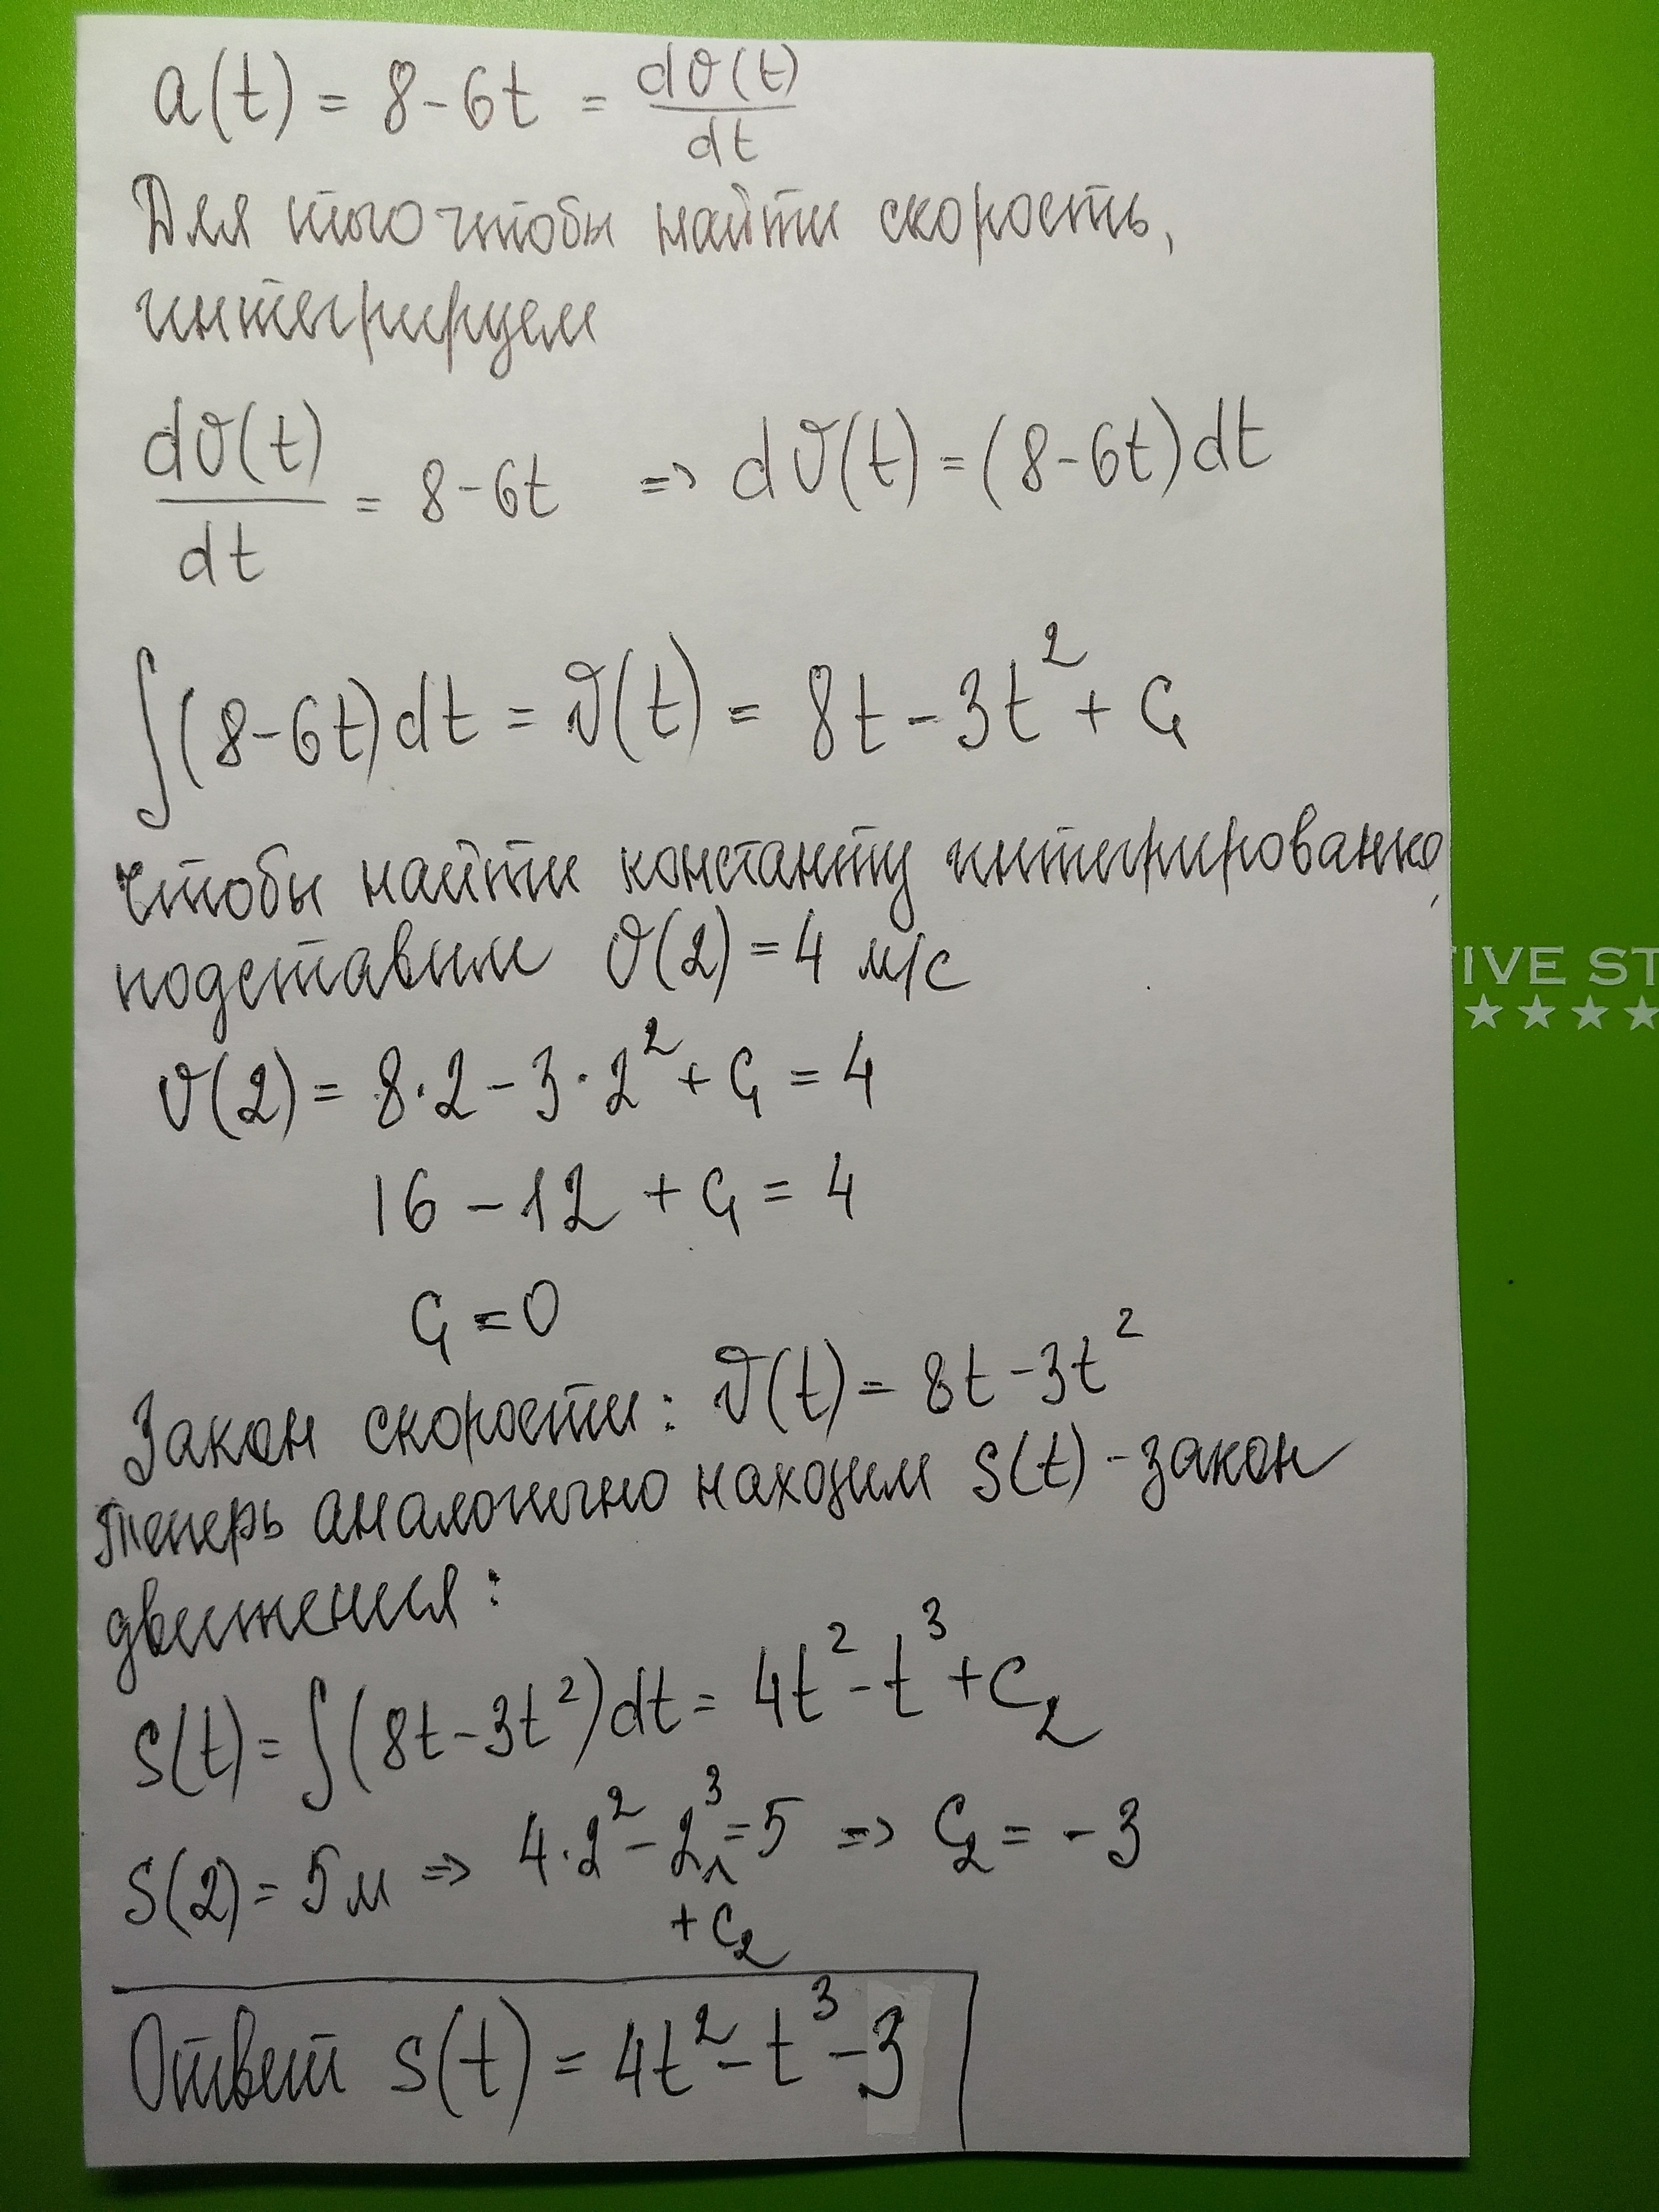 a(t) = 8-6t = dϑ(t)/dt
Для того чтобы найти скорость,
интегрируем
dϑ(t)/dt = 8-6t => dϑ(t) = (8-6t)dt
∫(8-6t)dt = ϑ(t) = 8t - 3t² + C₁
Чтобы найти константу интегрирования,
подставим ϑ(2) = 4 м/с
ϑ(2) = 8·2 - 3·2² + C₁ = 4
16 - 12 + C₁ = 4
C₁ = 0
Закон скорости: ϑ(t) = 8t - 3t²
Теперь аналогично находим S(t) - закон
движения:
S(t) = ∫(8t - 3t²)dt = 4t² - t³ + C₂
S(2) = 5м => 4·2² - 2³ = 5 => C₂ = -3
+ C₂
Ответ S(t) = 4t² - t³ - 3
TIVE ST
★★★★